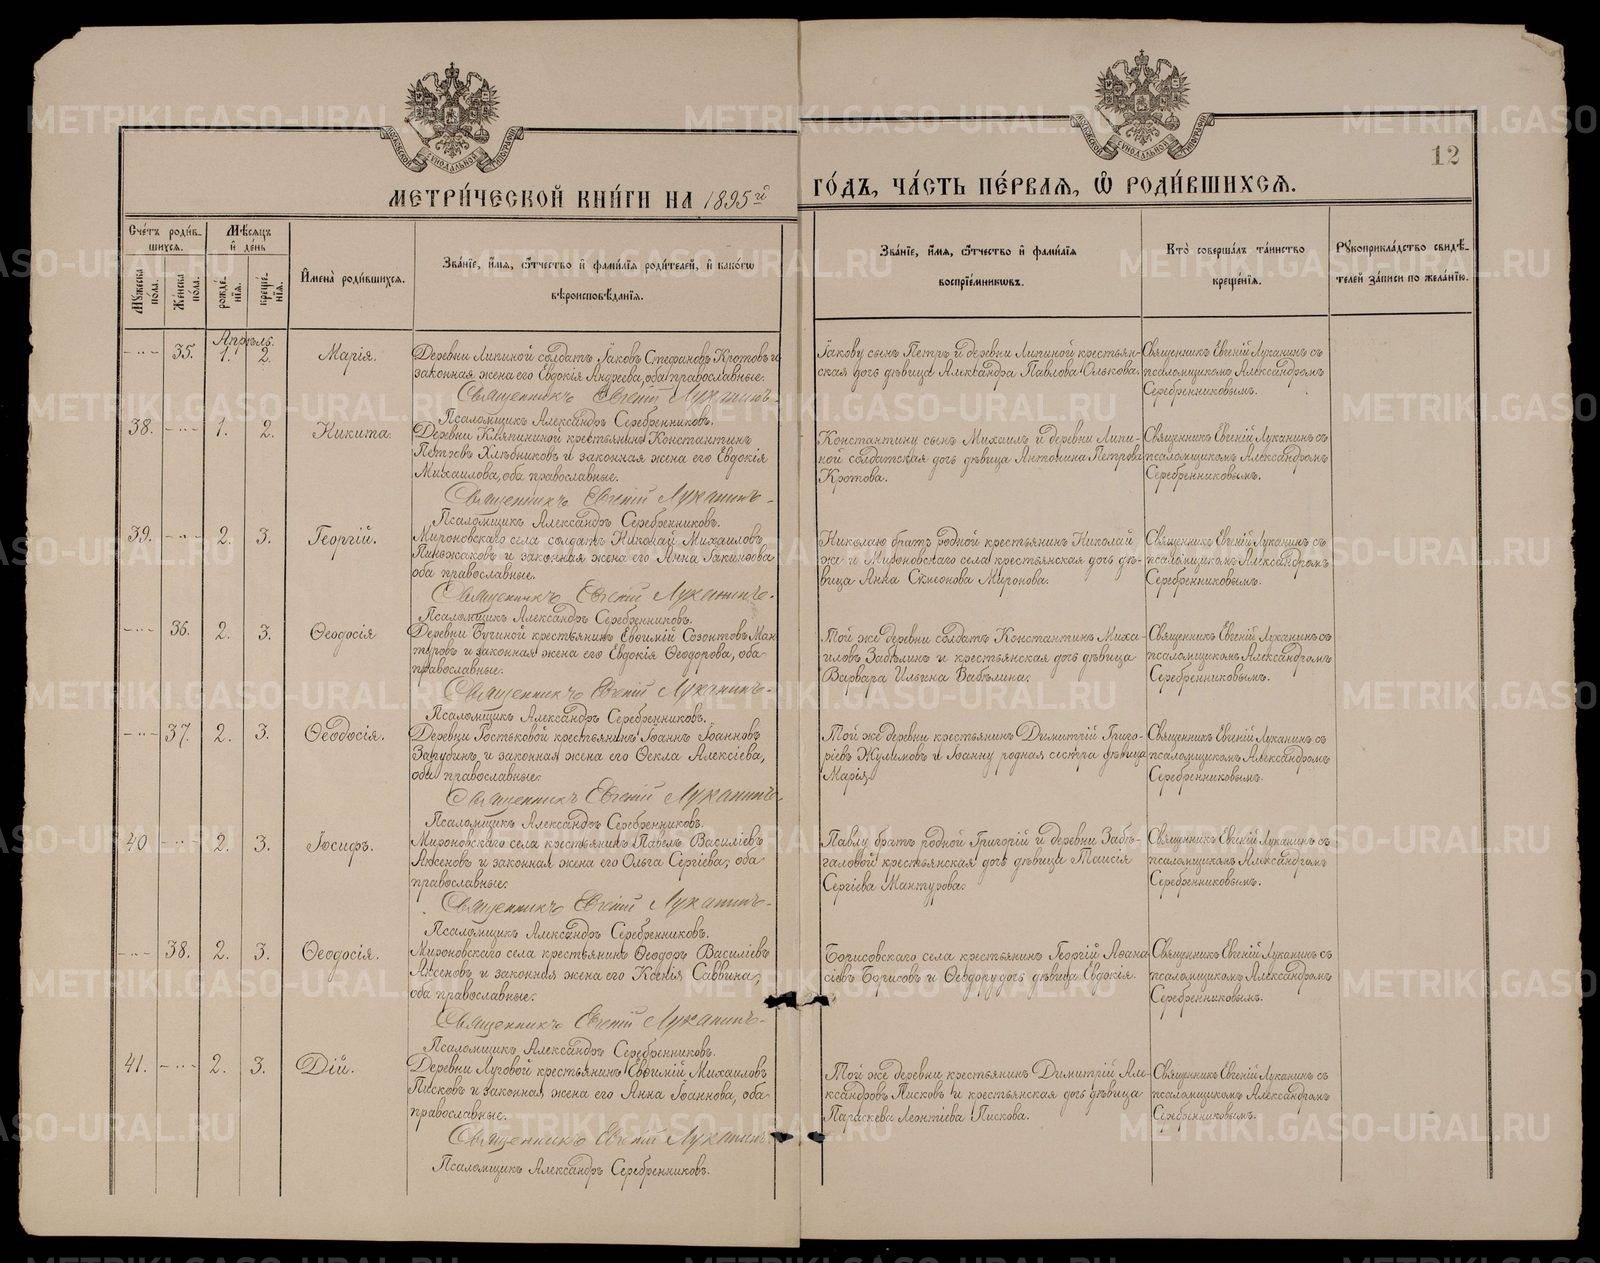 12
МОСКОВСКОЙ СѴНОДАЛЬНОЙ ТИПОГРАФІИ
МОСКОВСКОЙ СѴНОДАЛЬНОЙ ТИПОГРАФІИ
МЕТРИ́ЧЕСКОЙ КНИ́ГИ НА 1895й ГО́ДЪ, ЧА́СТЬ ПЕ́РВАѦ, Ѡ РОДИ́ВШИХСѦ.
Сче́тъ роди́в-
шихся.
Мꙋжеска по́ла.
Же́нска по́ла.
Мѣ́сяцъ и҆ де́нь
рожде́нїѧ.
креще́нїѧ.
И҆мена̀ роди́вшихся.
Зва́нїе, и҆́мѧ, ѻ҆́тчество и҆ фами́лїѧ роди́телей, и҆ како́гѡ
вѣроисповѣ́данїѧ.
Зва́нїе, и҆́мѧ, ѻ҆́тчество и҆ фами́лїѧ
воспрїе́мникѡвъ.
Кто̀ соверша́лъ та́инство
креще́нїѧ.
Рꙋкоприкла́дство свидѣ́-
телей за́писи по жела́нїю.
Апрѣль.
35. 1. 2. Марія.
Деревни Липиной солдатъ Іаковъ Стефановъ Кротовъ и
законная жена его Евдокія Андреева, оба православные.
Священникъ Евгеній Луканинъ.
Псаломщикъ Александръ Серебренниковъ.
Іакову сынъ Петръ и деревни Липиной крестьян-
ская дочь дѣвица Александра Павлова Олькова.
Священникъ Евгеній Луканинъ съ
псаломщикомъ Александромъ
Серебренниковымъ.
38. 1. 2. Никита.
Деревни Кляпининой крестьянинъ Константинъ
Петровъ Хлѣбниковъ и законная жена его Евдокія
Михаилова, оба православные.
Священникъ Евгеній Луканинъ.
Псаломщикъ Александръ Серебренниковъ.
Константину сынъ Михаилъ и деревни Липи-
ной солдатская дочь дѣвица Антонина Петрова
Кротова.
Священникъ Евгеній Луканинъ съ
псаломщикомъ Александромъ
Серебренниковымъ.
39. 2. 3. Георгій.
Мироновскаго села солдатъ Николай Михаиловъ
Пинжаковъ и законная жена его Анна Іакинѳова
оба православные.
Священникъ Евгеній Луканинъ.
Псаломщикъ Александръ Серебренниковъ.
Николаю братъ родной крестьянинъ Николай
же и Мироновскаго села крестьянская дочь дѣ-
вица Анна Симеонова Миронова.
Священникъ Евгеній Луканинъ съ
псаломщикомъ Александромъ
Серебренниковымъ.
36. 2. 3. Ѳеодосія
Деревни Бучиной крестьянинъ Евѳимій Созонтовъ Ман-
туровъ и законная жена его Евдокія Ѳеодорова, оба
православные.
Священникъ Евгеній Луканинъ.
Псаломщикъ Александръ Серебренниковъ.
Той же деревни солдатъ Константинъ Миха-
иловъ Забѣлинъ и крестьянская дочь дѣвица
Варвара Ильина Забѣлина.
Священникъ Евгеній Луканинъ съ
псаломщикомъ Александромъ
Серебренниковымъ.
37. 2. 3. Ѳеодосія.
Деревни Гостьковой крестьянинъ Іоаннъ Іоанновъ
Зарубинъ и законная жена его Ѳекла Алексіева,
оба православные.
Священникъ Евгеній Луканинъ
Псаломщикъ Александръ Серебренниковъ.
Той же деревни крестьянинъ Димитрій Григо-
ріевъ Жулимовъ и Іоанну родная сестра дѣвица
Марія.
Священникъ Евгеній Луканинъ съ
псаломщикомъ Александромъ
Серебренниковымъ.
40 2. 3. Іосифъ.
Мироновскаго села крестьянинъ Павелъ Василіевъ
Аксеновъ и законная жена его Ольга Сергіева, оба
православные.
Священникъ Евгеній Луканинъ.
Псаломщикъ Александръ Серебренниковъ.
Павлу братъ родной Григорій и деревни Забѣ-
галовой крестьянская дочь дѣвица Таисія
Сергіева Мантурова.
Священникъ Евгеній Луканинъ съ
псаломщикомъ Александромъ
Серебренниковымъ.
38. 2. 3. Ѳеодосія.
Мироновскаго села крестьянинъ Ѳеодоръ Василіевъ
Аксеновъ и законная жена его Ксенія Саввина,
оба православные.
Священникъ Евгеній Луканинъ.
Псаломщикъ Александръ Серебренниковъ.
Борисовскаго села крестьянинъ Георгій Аѳана
сіевъ Борисовъ и Ѳеодору дочь дѣвица Евдокія.
Священникъ Евгеній Луканинъ съ
псаломщикомъ Александромъ
Серебренниковымъ.
41. 2. 3. Дій.
Деревни Луговой крестьянинъ Евѳимій Михаиловъ
Писковъ и законная жена его Анна Іоаннова, оба
православные.
Священникъ Евгеній Луканинъ.
Псаломщикъ Александръ Серебренниковъ.
Той же деревни крестьянинъ Димитрій Але-
ксандровъ Писковъ и крестьянская дочь дѣвица
Параскева Леонтіева Пискова.
Священникъ Евгеній Луканинъ съ
псаломщикомъ Александромъ
Серебренниковымъ.
METRIKI.GASO-URAL.RU